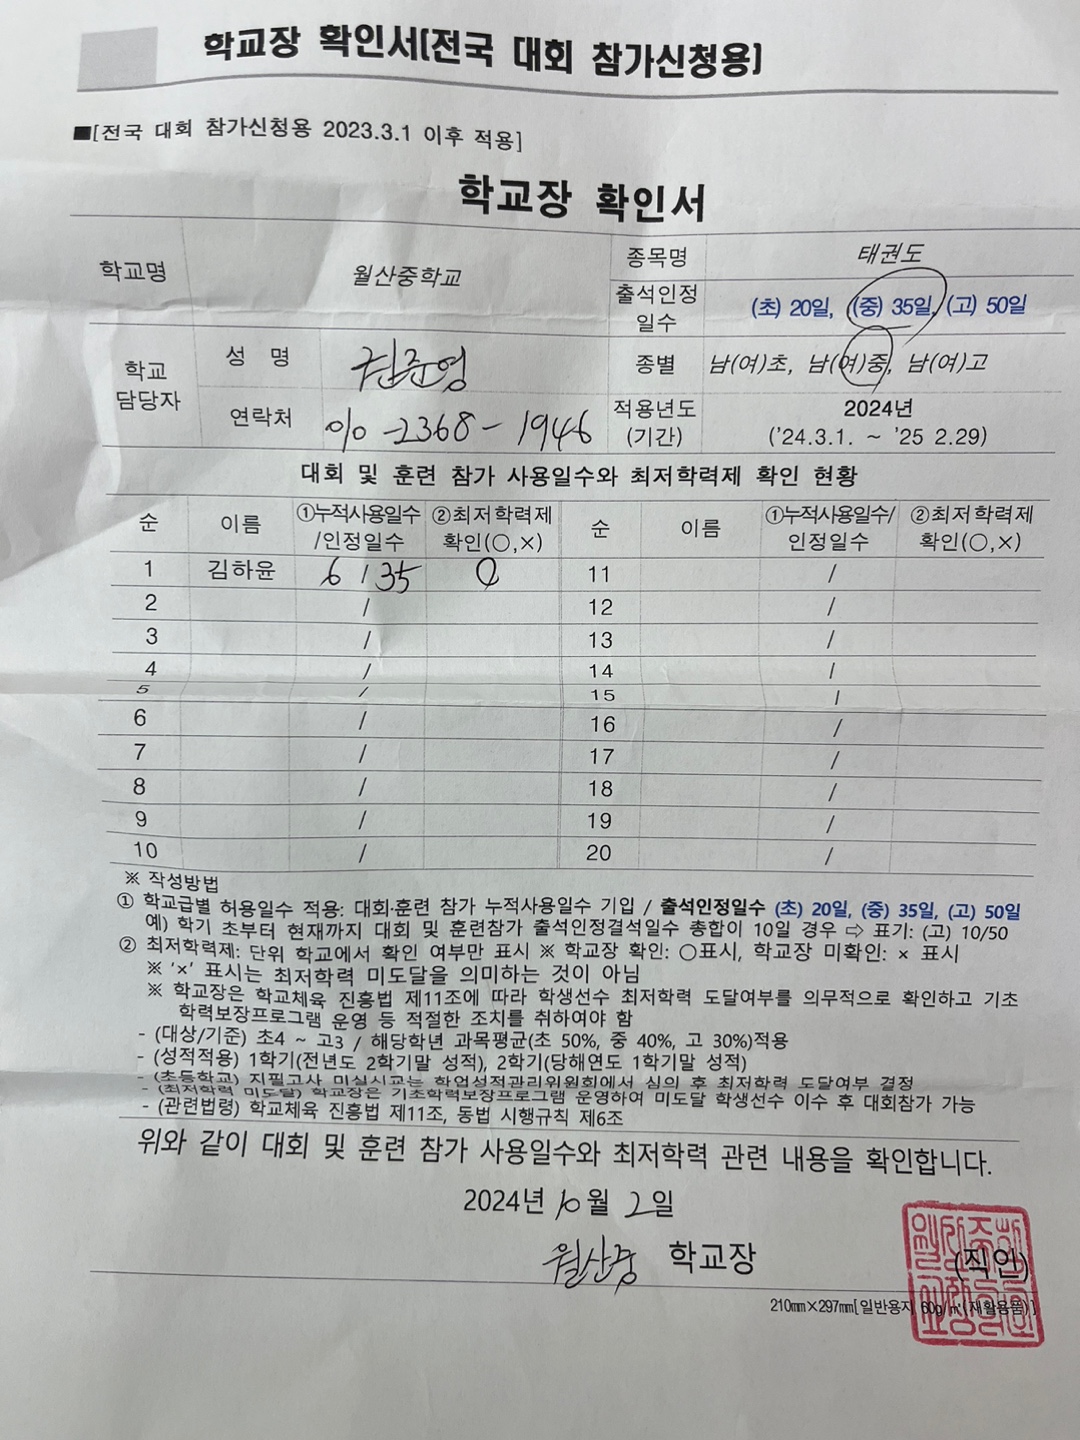 학교장 확인서(전국 대회 참가신청용)
■[전국 대회 참가신청용 2023.3.1 이후 적용]
학교장 확인서
학교명 월산중학교 종목명 태권도
출석인정 일수 (초) 20일, (중) 35일, (고) 50일
학교 담당자 성 명 권준영 종별 남(여)초, 남(여)중, 남(여)고
연락처 010-2368-1946 적용년도 (기간) 2024년 ('24.3.1. ~ '25 2.29)
대회 및 훈련 참가 사용일수와 최저학력제 확인 현황
순 이름 ①누적사용일수/인정일수 ②최저학력제 확인(○,×) 순 이름 ①누적사용일수/인정일수 ②최저학력제 확인(○,×)
1 김하윤 6 / 35 O 11 /
2 / 12 /
3 / 13 /
4 / 14 /
5 / 15 /
6 / 16 /
7 / 17 /
8 / 18 /
9 / 19 /
10 / 20 /
※ 작성방법
① 학교급별 허용일수 적용: 대회·훈련 참가 누적사용일수 기입 / 출석인정일수 (초) 20일, (중) 35일, (고) 50일
예) 학기 초부터 현재까지 대회 및 훈련참가 출석인정결석일수 총합이 10일 경우 ⇨ 표기: (고) 10/50
② 최저학력제: 단위 학교에서 확인 여부만 표시 ※ 학교장 확인: ○표시, 학교장 미확인: × 표시
※ '×' 표시는 최저학력 미도달을 의미하는 것이 아님
※ 학교장은 학교체육 진흥법 제11조에 따라 학생선수 최저학력 도달여부를 의무적으로 확인하고 기초
학력보장프로그램 운영 등 적절한 조치를 취하여야 함
- (대상/기준) 초4 ~ 고3 / 해당학년 과목평균(초 50%, 중 40%, 고 30%)적용
- (성적적용) 1학기(전년도 2학기말 성적), 2학기(당해연도 1학기말 성적)
- (초등학교) 지필고사 미실시교는 학업성적관리위원회에서 심의 후 최저학력 도달여부 결정
- (최저학력 미도달) 학교장은 기초학력보장프로그램 운영하여 미도달 학생선수 이수 후 대회참가 가능
- (관련법령) 학교체육 진흥법 제11조, 동법 시행규칙 제6조
위와 같이 대회 및 훈련 참가 사용일수와 최저학력 관련 내용을 확인합니다.
2024년 10월 2일
월산중 학교장 (직인)
210㎜×297㎜[일반용지 60g/㎡(재활용품)]